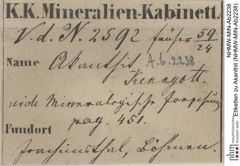 K.K. Mineralien-Kabinett.
V. d. N. 2592 früher 59/24
Name Akanthit A.b. 2238
Kenngott.
vide Mineralogische Forschung
pag. 451.
Fundort
Joachimsthal, Böhmen.
NHMW-MIN-Ab2238
Etiketten zu Akanthit (NHMW-MIN-Ab2238)